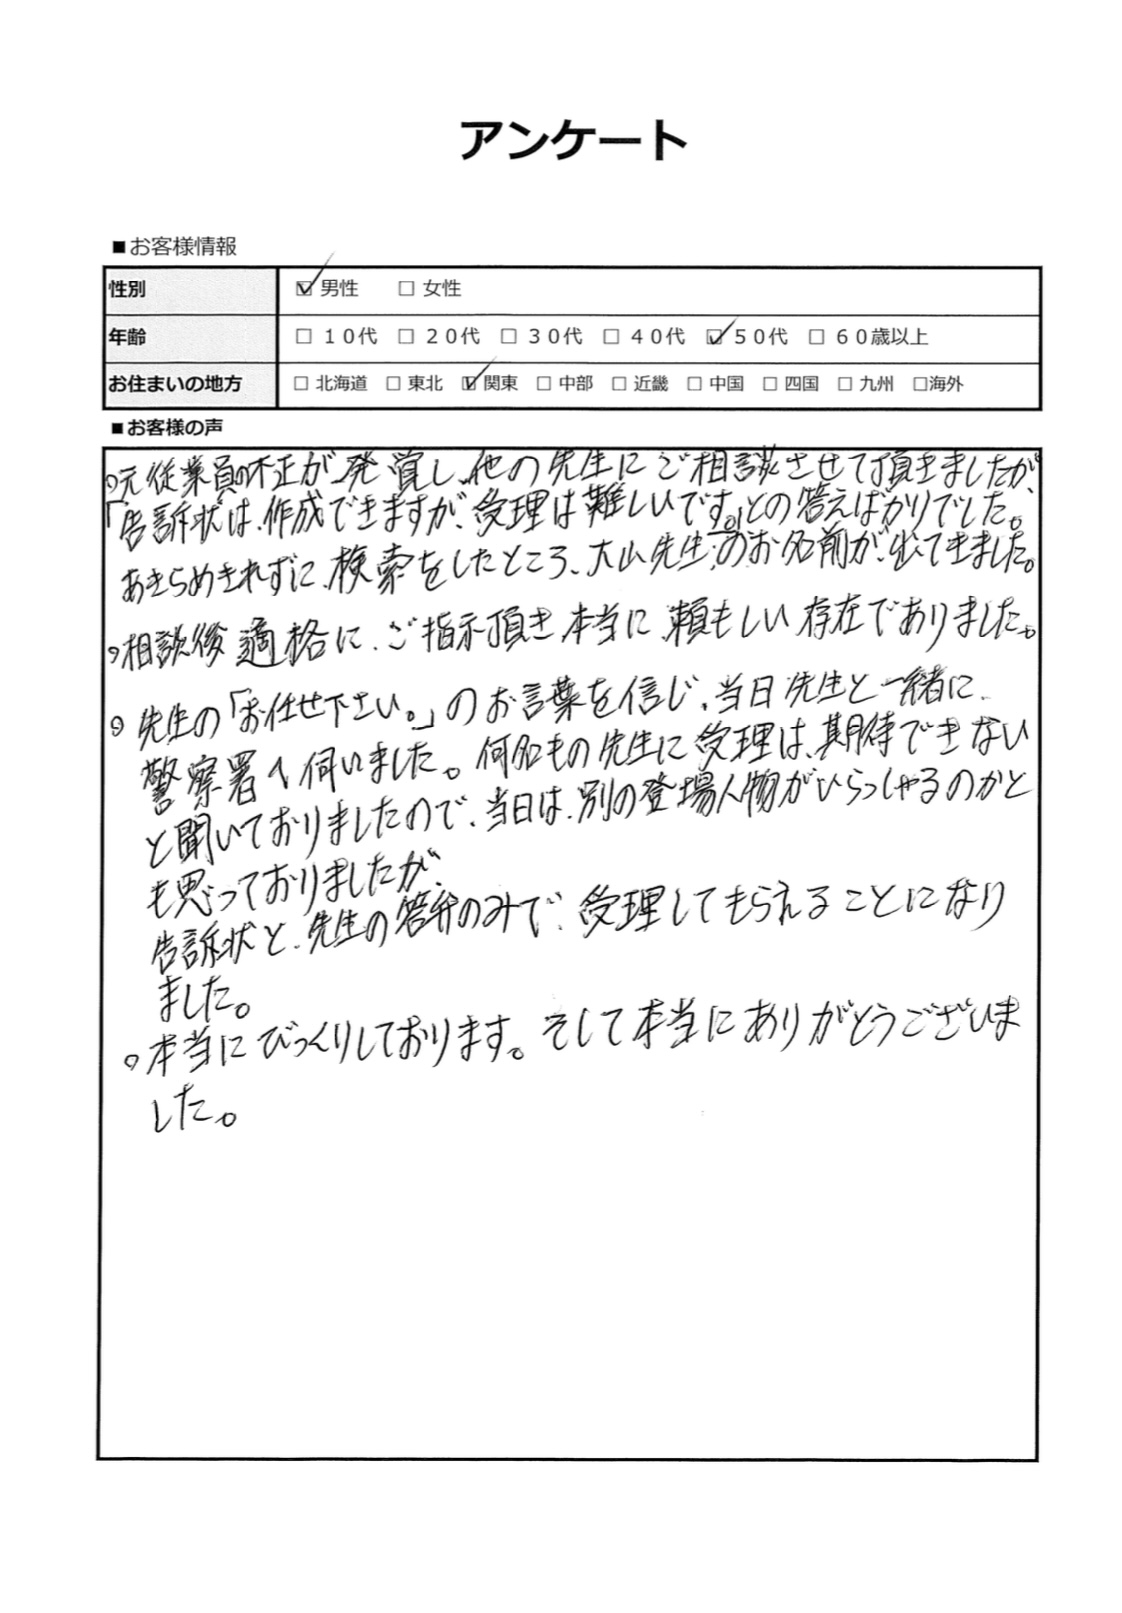 アンケート
■お客様情報
性別 ☑ 男性 □ 女性
年齢 □ 10代 □ 20代 □ 30代 □ 40代 ☑ 50代 □ 60歳以上
お住まいの地方 □ 北海道 □ 東北 ☑ 関東 □ 中部 □ 近畿 □ 中国 □ 四国 □ 九州 □海外
■お客様の声
○元従業員の不正が発覚し、他の先生にご相談させて頂きましたが、
「告訴状は、作成できますが、受理は難しいです。」との答えばかりでした。
あきらめきれずに、検索をしたところ、大山先生のお名前が、出てきました。
○相談後適格に、ご指示頂き本当に頼もしい存在でありました。
○先生の「お任せ下さい。」のお言葉を信じ、当日先生と一緒に、
警察署へ伺いました。何名もの先生に受理は、期待できない
と聞いておりましたので、当日は、別の登場人物がいらっしゃるのかと
も思っておりましたが、
告訴状と、先生の答弁のみで、受理してもらえることになり
ました。
○本当にびっくりしております。そして本当にありがとうございま
した。